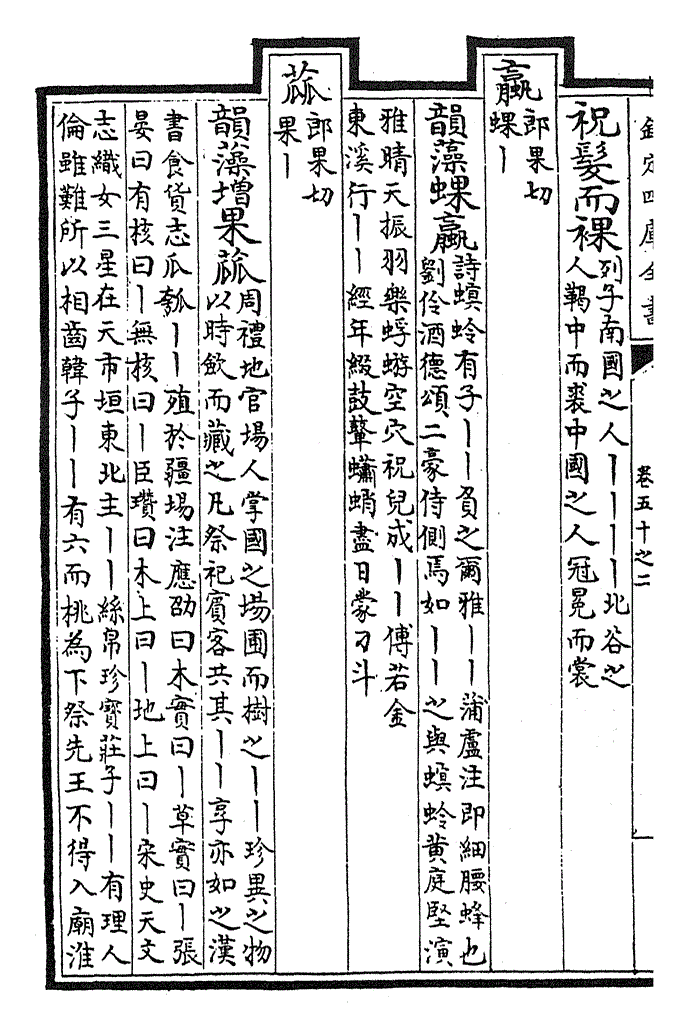 欽定四庫全書
卷五十之二
祝髮而裸列子南國之人丨丨丨丨北谷之
人鞨巾而裘中國之人冠冕而裳
蠃郎果切
蜾丨
韻藻蜾蠃詩螟蛉有子丨丨負之爾雅丨丨蒲盧注即細腰蜂也
劉伶酒德頌二豪侍側焉如丨丨之與螟蛉黄庭堅演
雅晴天振羽樂蜉蝣空穴祝兒成丨丨傅若金
東溪行丨丨經年綴鼓鼙蠨蛸盡日蒙刁斗
蓏郎果切
果丨
韻藻增果蓏周禮地官場人掌國之場圃而樹之丨丨珍異之物
以時斂而藏之凡祭祀賓客共其丨丨享亦如之漢
書食貨志瓜瓠丨丨殖於疆場注應劭曰木實曰丨草實曰丨張
晏曰有核曰丨無核曰丨臣瓚曰木上曰丨地上曰丨宋史天文
志織女三星在天市垣東北主丨丨絲帛珍寶莊子丨丨有理人
倫雖難所以相齒韓子丨丨有六而桃為下祭先王不得入廟淮